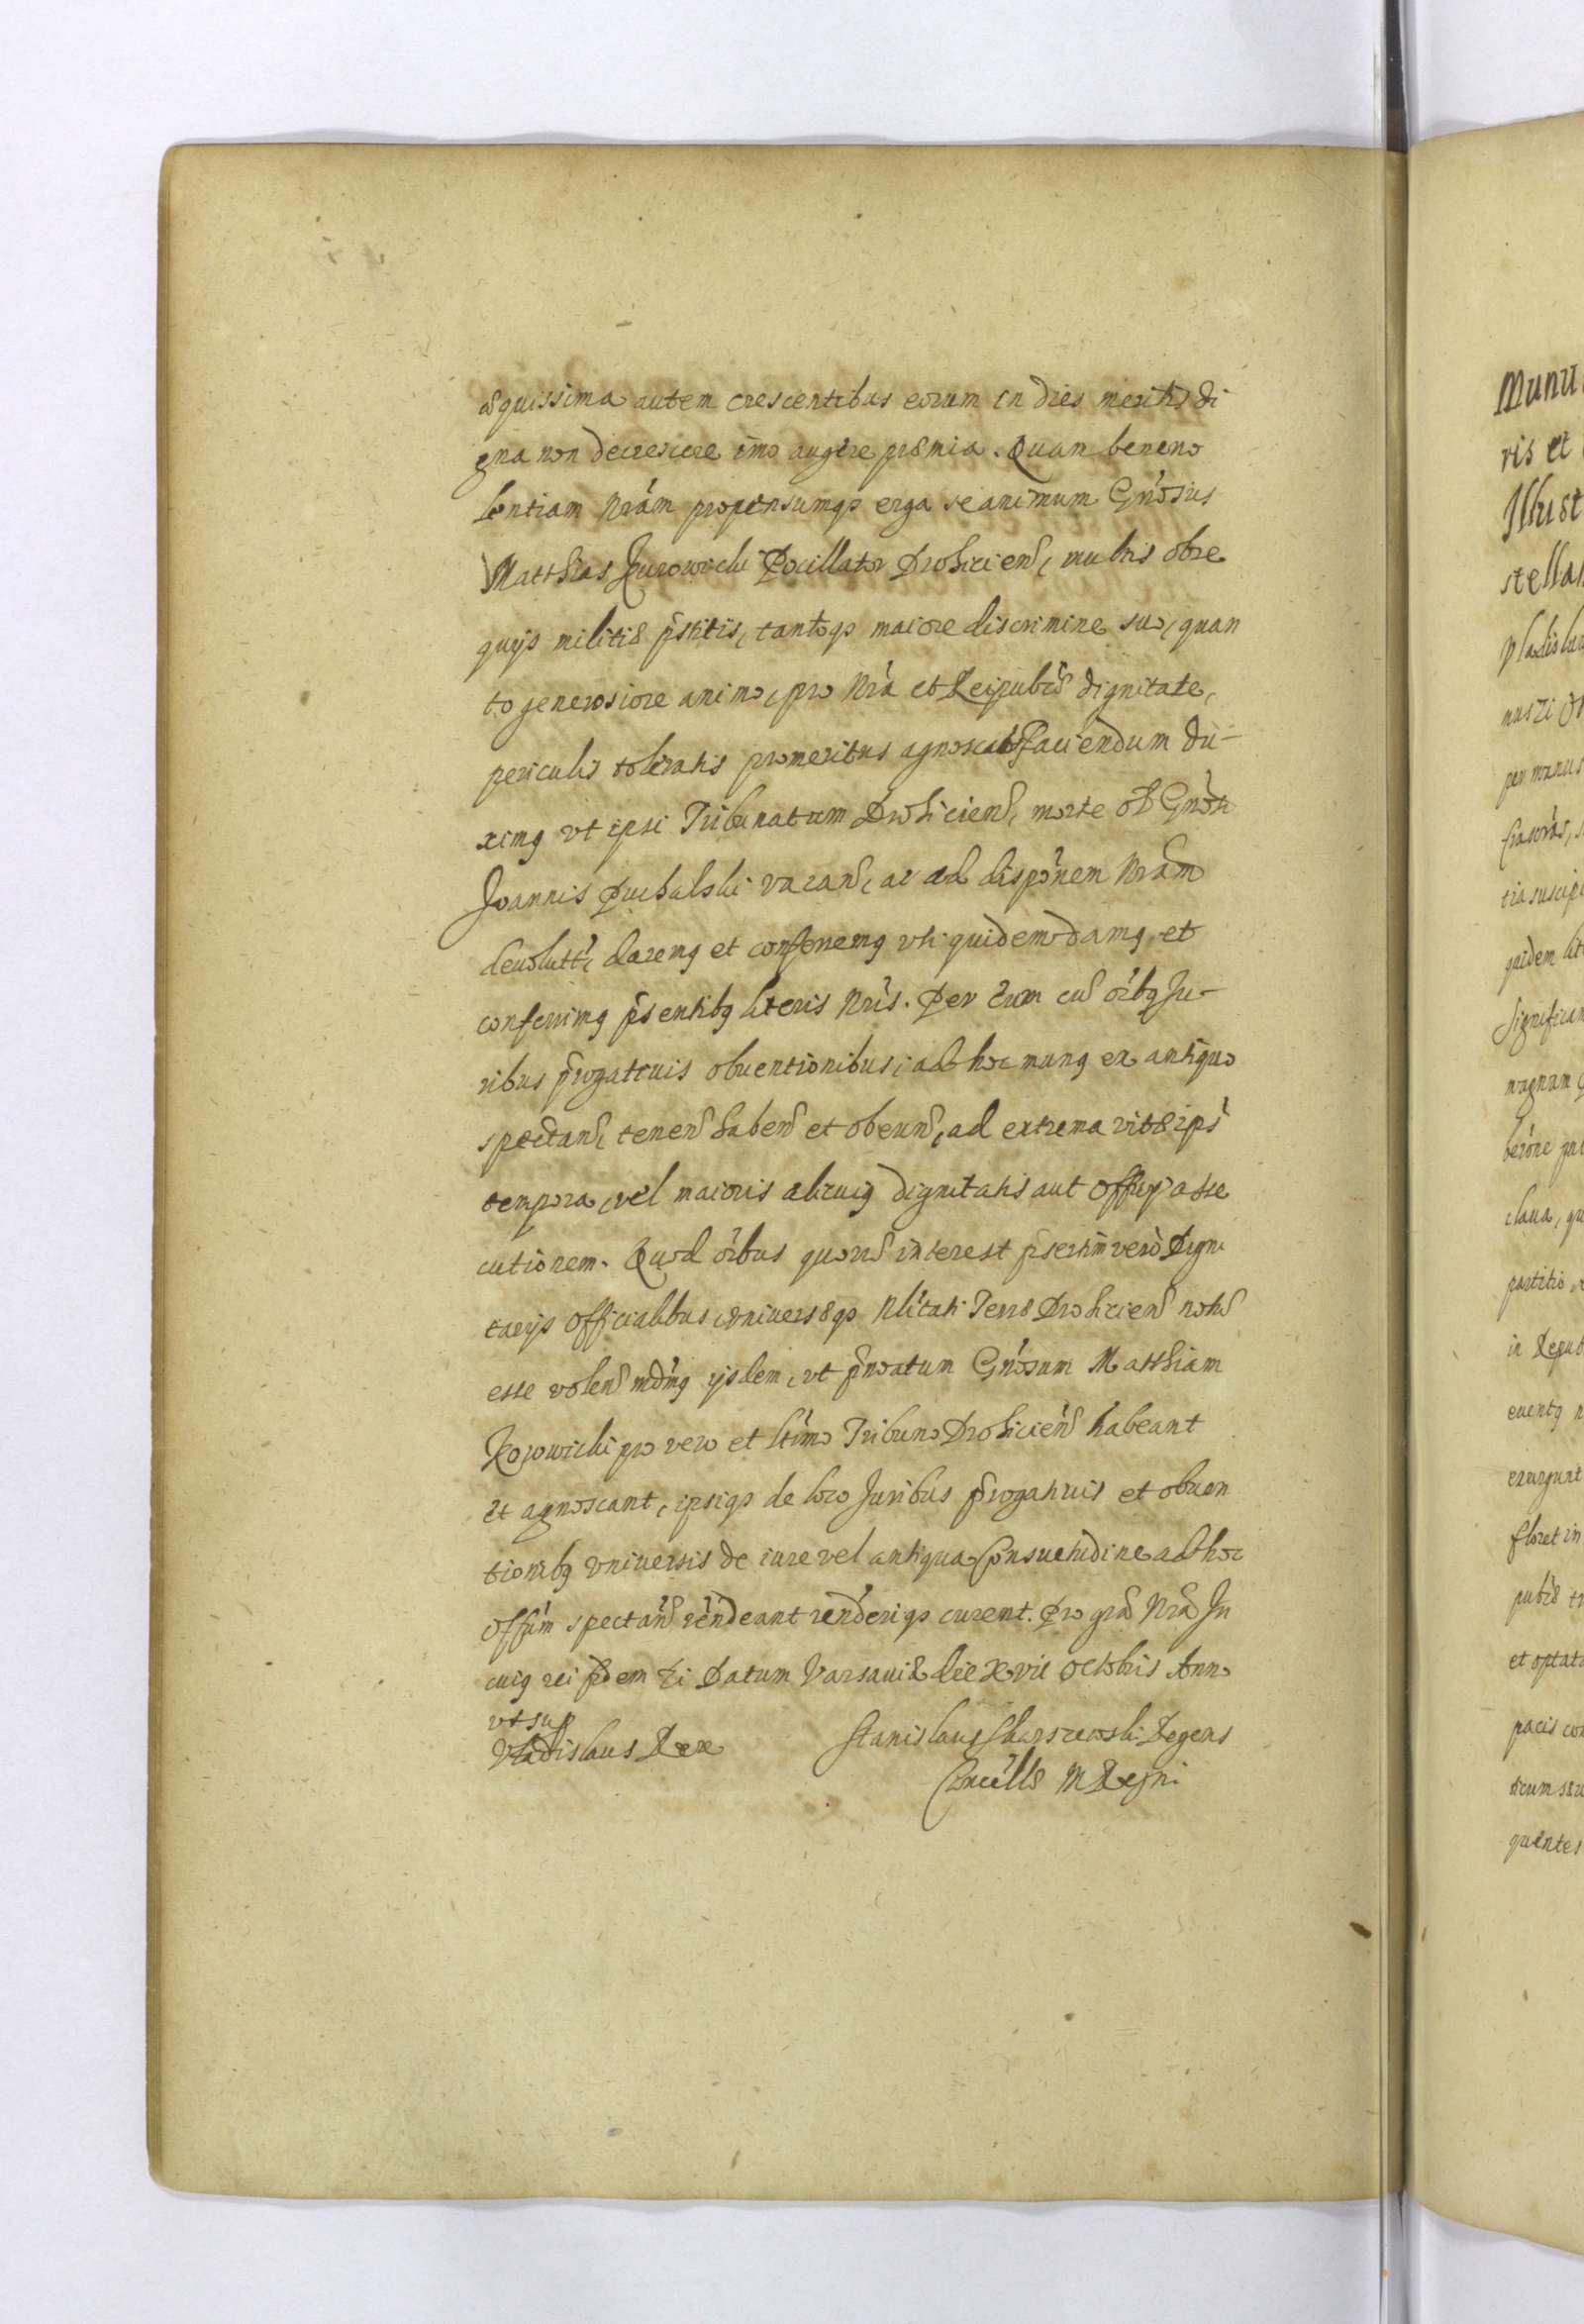 æquissima autem crescentibus eorum in dies meritis di
gna non decrescere imo augere præmia. Quam beneuo
lentiam Nram propensumq erga se animum Gnosus
Matthias Kurowicki Pocillator Drohicien, multis obse
quijs militiæ pstitis, tantoq maiore discrimine suo, quan
to generosiore animo, pro Nra et Reipubcæ dignitate,
periculis toleratis promeritus agnoscat faciendum du-
ximg vt ipsi Tribunatum Drohicien, morte olim Gnosi
Joannis Puchalski vacan, ac ad disponem Nram
deuolutu, daremg et conferremg vti quidem damg, et
conferimg psentibg literis Nris. Per Eum cu oibg Ju-
ribus prrogatiuis obuentionibus, ad hoc mung ex antiquo
spectan, tenen haben et obeun, ad extrema vitæ ips
tempora, vel maioris alicuig dignitatis aut Officij asse
cutionem. Quod oibus quoru interest psertim vero Digni
tarijs Officialibus, vniuersæq Nlitati Terræ Drohicien notu
esse volen mdmg ijsdem, vt pnoatum Gnosum Matthiam
Kosowicki pro vero et ltimo Tribuno Drohicien habeant
et agnoscant, ipsiq de loco Juribus prrogatiuis et obuen
tionibg vniuersis de iure vel antiqua Consuetudine ad hoc
Offum spectan rendeant renderiq curent. Pro gra Nra In
cuig rei fidem Di Datum Varsauiæ die XVII Octobris Anno
vt sup
Vladislaus Rex Stanislaus Skarszewski Regens
Cancellæ M Regni
Munu
ris et
Illust
stella
Vladislau
nuszi
per manus
tria suscipi
quidem lit
Significam
magnam
claua, qu
partitio
in Repub
euentg
exurgunt
floret in
et optat
pacis con
quentes